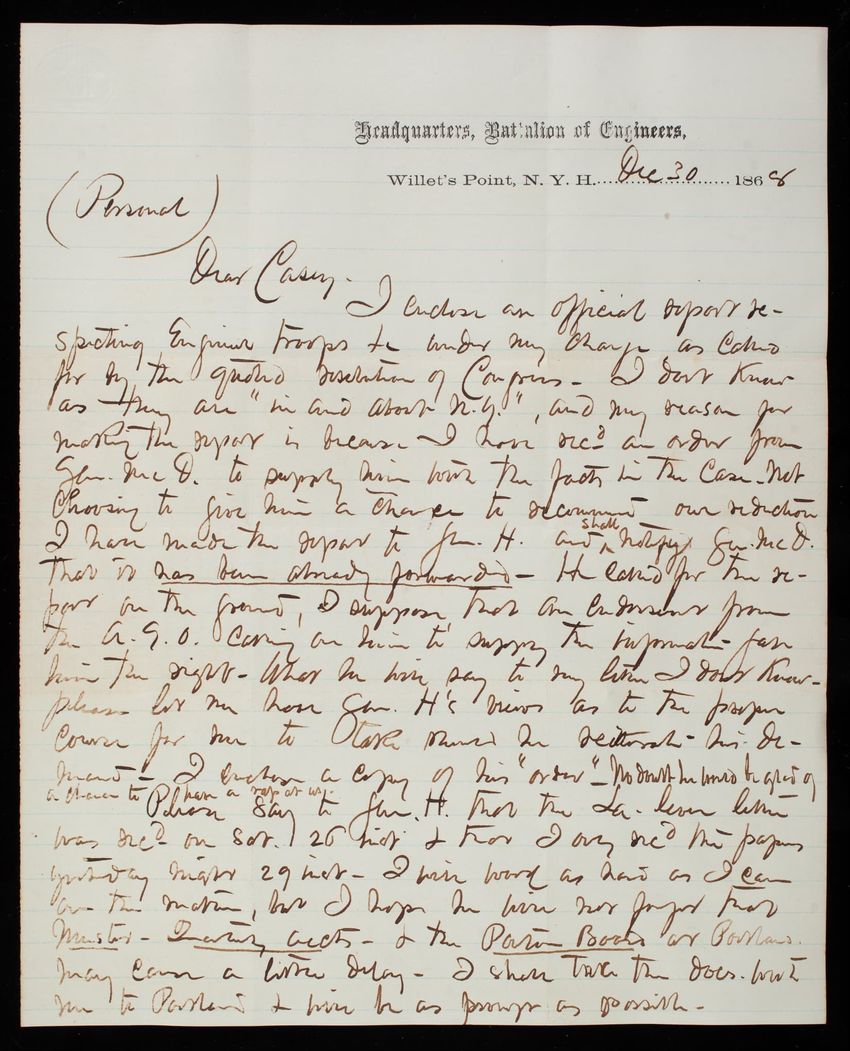 Headquarters, Battalion of Engineers,
Willet's Point, N. Y. H. Dec 30 1868
(Personal)
Dear Casey -
I enclose an official report re-
specting Engineer troops &c under my charge as called
for by the quoted resolution of Congress - I don't know
as they are "in and about N.Y.", and my reason for
making the report is because I have recd an order from
Gen. McD. to supply him with the facts in the case. Not
choosing to give him a chance to recommend our reduction
I have made the report to Gen. H. and shall notify Gen. McD.
that it has been already forwarded - He called for the re-
port on the ground, I suppose, that an endorsement from
the A.G.O. calling on him to supply the information gave
him the right - What he will say to my letter I don't know -
please let me have Gen. H's views as to the proper
course for me to take should he reiterate his de-
mand - I enclose a copy of his "order" - No doubt he would be glad of
a chance to have a rap at us.
Please say to Gen. H. that the letter
was recd on Sat. 26 inst & that I only recd the papers
yesterday night 29 inst - I will work as hard as I can
on the matter, but I hope he will not forget that
Muster - Quarterly accts - & the Board at Portland
may cause a little delay - I shall take the docs. with
me to Portland & will be as prompt as possible -